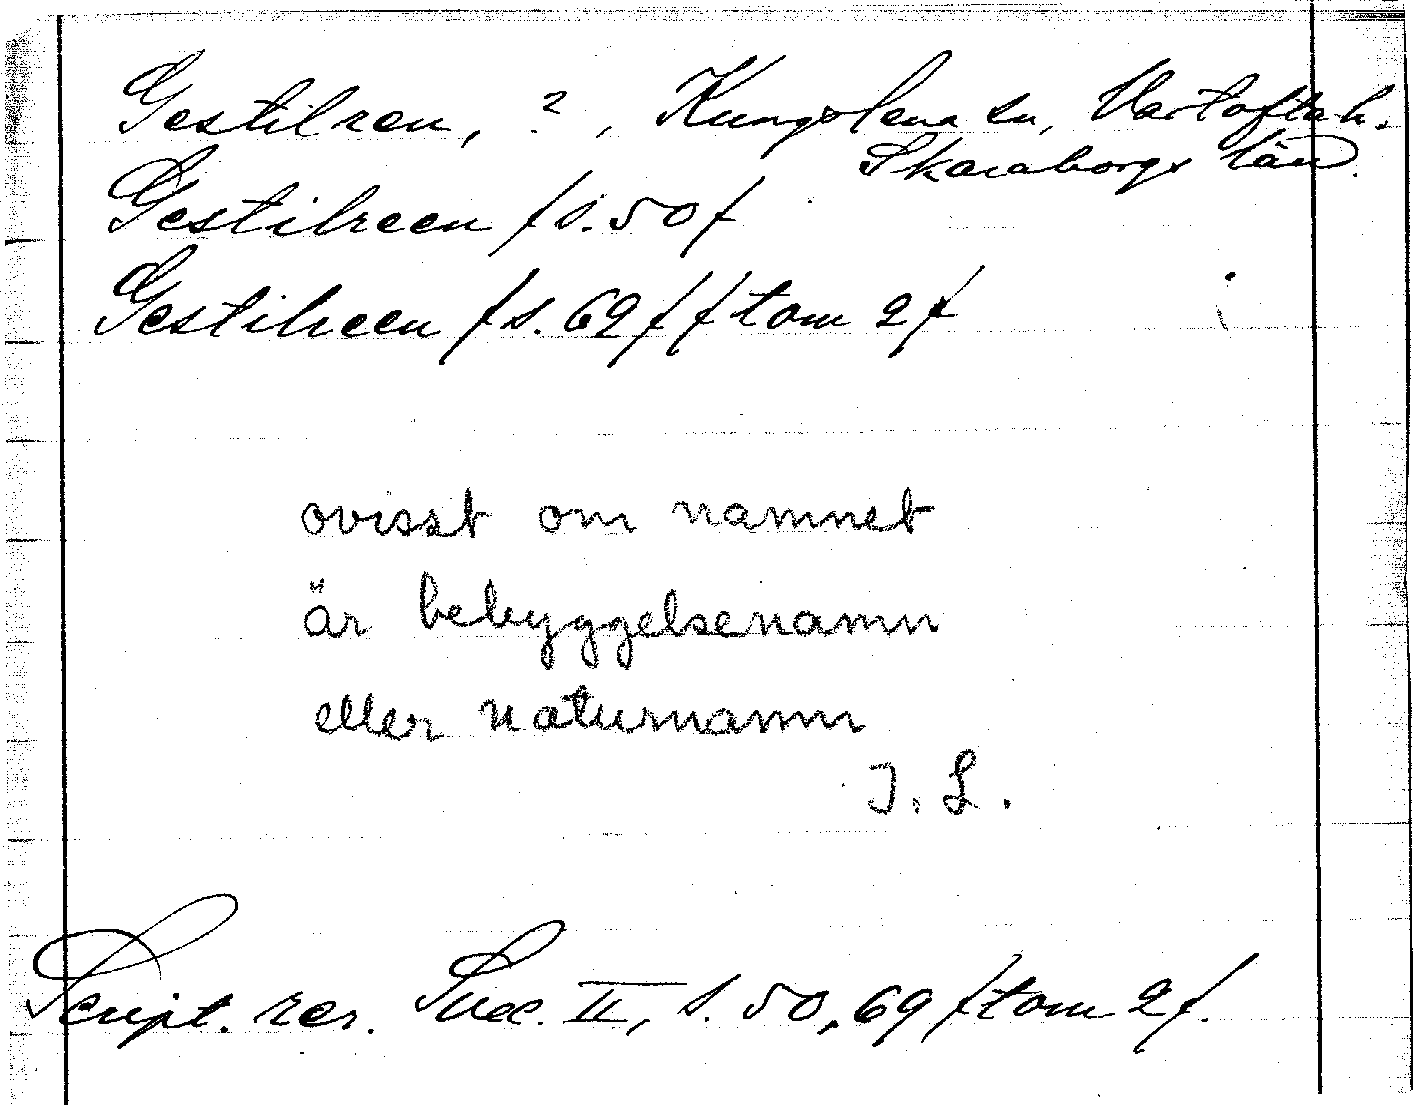 Gestilren, ?, Kungslena sn, Vartofta h.
Skaraborgs län.
Gestilreen /s. 50/
Gestilreen /s. 69/ /tom 2/
ovisst om namnet
är bebyggelsenamn
eller naturnamn
J. L.
Script. rer. Suec. II, s. 50, 69 /tom 2/.